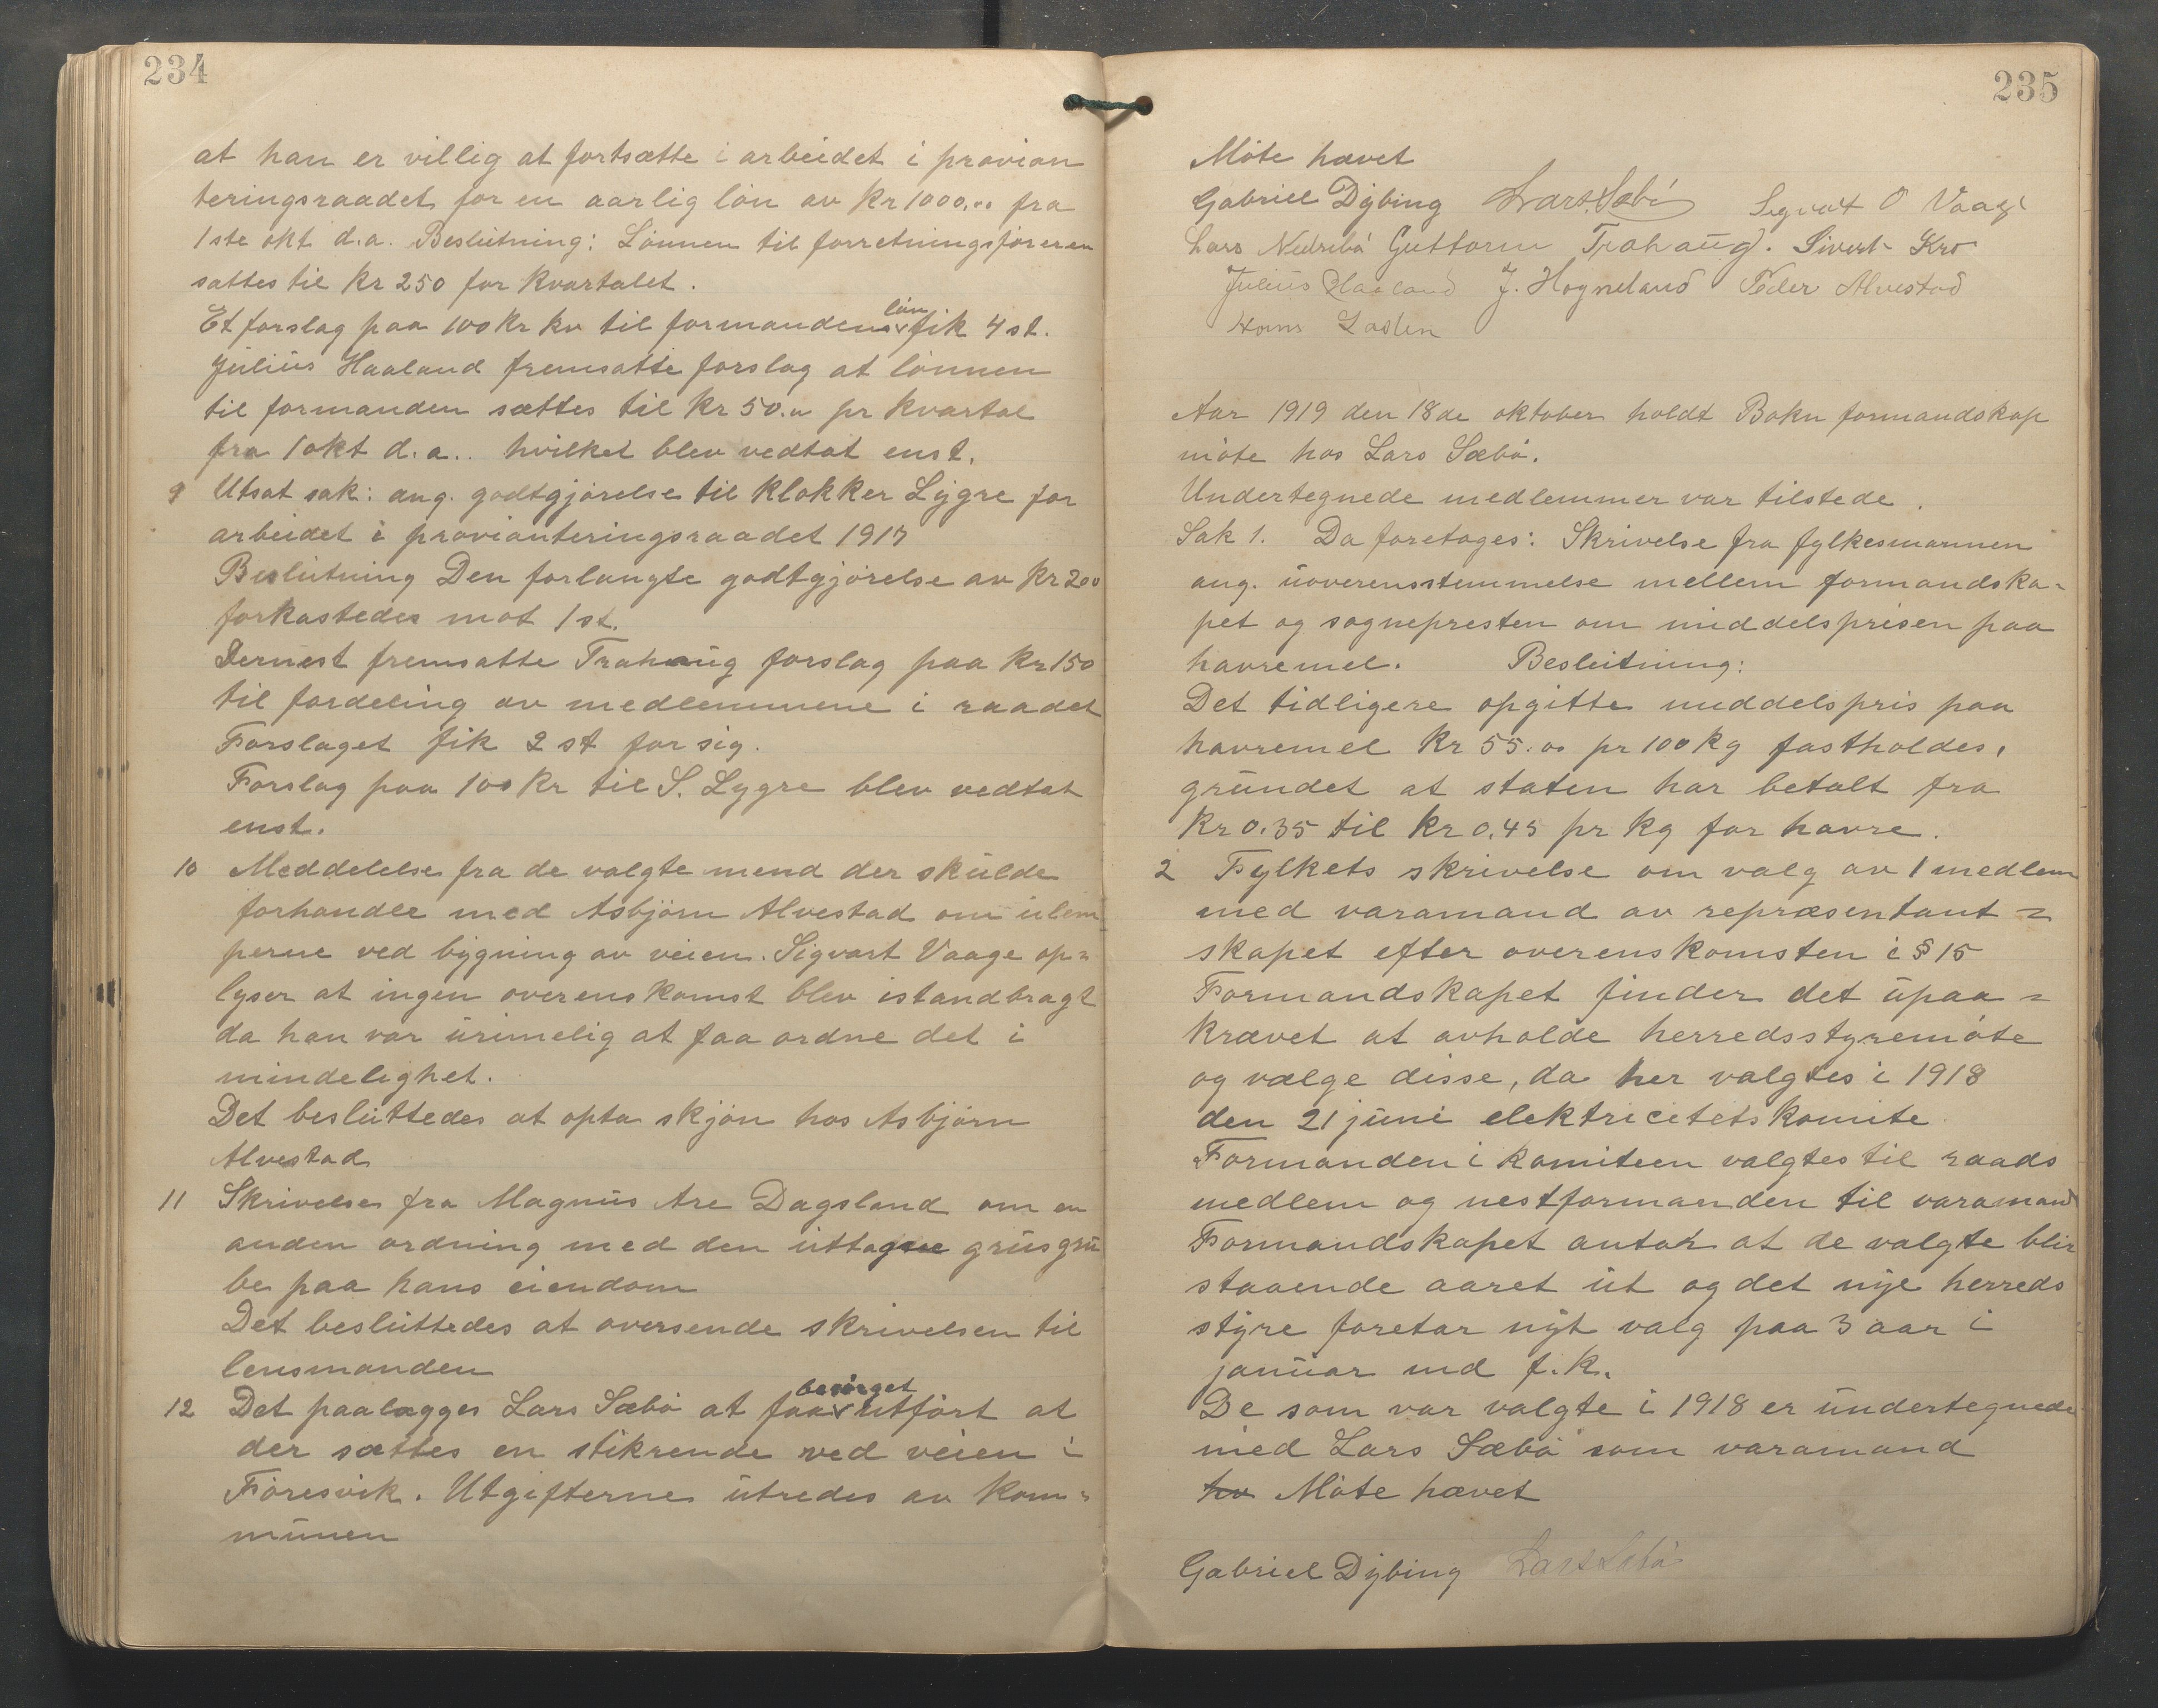 234
at han er villig at fortsætte i arbeidet i provian
teringsraadet for en aarlig løn av kr 1000.00 fra
1ste okt d.a. Beslutning: Lønnen til forretningsføreren
sattes til kr 250 for kvartalet.
Et forslag paa 100 kr kv til formandens løn fik 4 st.
Julius Haaland fremsatte forslag at lønnen
til formanden sættes til kr 50.00 pr kvartal
fra 1 okt d.a.. hvilket blev vedtat enst.
9 Utsat sak: ang. godtgjørelse til klokker Lygre for
arbeidet i provianteringsraadet 1917
Beslutning Den forlangte godtgjørelse av kr 200
forkastedes mot 1 st.
Dernest fremsatte Trahaug forslag paa kr 150
til fordeling av medlemmene i raadet
Forslaget fik 2 st for sig.
Forslag paa 100 kr til S. Lygre blev vedtat
enst.
10 Meddelelse fra de valgte mend der skulde
forhandle med Asbjørn Alvestad om ulem
perne ved bygning av veien. Sigvart Vaage op=
lyser at ingen overenskomst blev istandbragt
da han var urimelig at faa ordne det i
mindelighet.
Det besluttedes at opta skjøn hos Asbjørn
Alvestad
11 Skrivelse fra Magnus Are Dagsland om en
anden ordning med den uttagne grusgru
be paa hans eiendom
Det besluttedes at oversende skrivelsen til
lensmanden
12 Det paalægges Lars Sæbø at faa besørget utført at
der sættes en stikrende ved veien i
Føresvik. Utgifterne utredes av kom=
munen
235
Møte hævet
Gabriel Dybing Lars Sæbø Sigvart O Vaage
Lars Nedrebø Guttorm Trahaug. Sivert Kro
Julius Haaland J. Hogneland Peder Alvestad
Hans
Aar 1919 den 18de oktober holdt Bokn formandskap
møte hos Lars Sæbø.
Undertegnede medlemmer var tilstede.
Sak 1. Da foretages: Skrivelse fra fylkesmannen
ang. uoverensstemmelse mellem formandska=
pet og sognepresten om middelsprisen paa
havremel. Beslutning:
Det tidligere opgitte middelspris paa
havremel kr 55.00 pr 100 kg fastholdes,
grundet at staten har betalt fra
kr 0.35 til kr 0.45 pr kg for havre.
2 Fylkets skrivelse om valg av 1 medlem
med varamand av repræsentant=
skapet efter overenskomsten i § 15
Formandskapet finder det upaa=
krævet at avholde herredsstyremøte
og vælge disse, da her valgtes i 1918
den 21 juni elektricitetskomite
Formanden i komiteen valgtes til raads
medlem og nestformanden til varamand
Formandskapet antar at de valgte blir
staaende aaret ut og det nye herreds
styre foretar nyt valg paa 3 aar i
januar md f.k.
De som var valgte i 1918 er undertegnede
med Lars Sæbø som varamand
hv Møte hævet
Gabriel Dybing Lars Sæbø